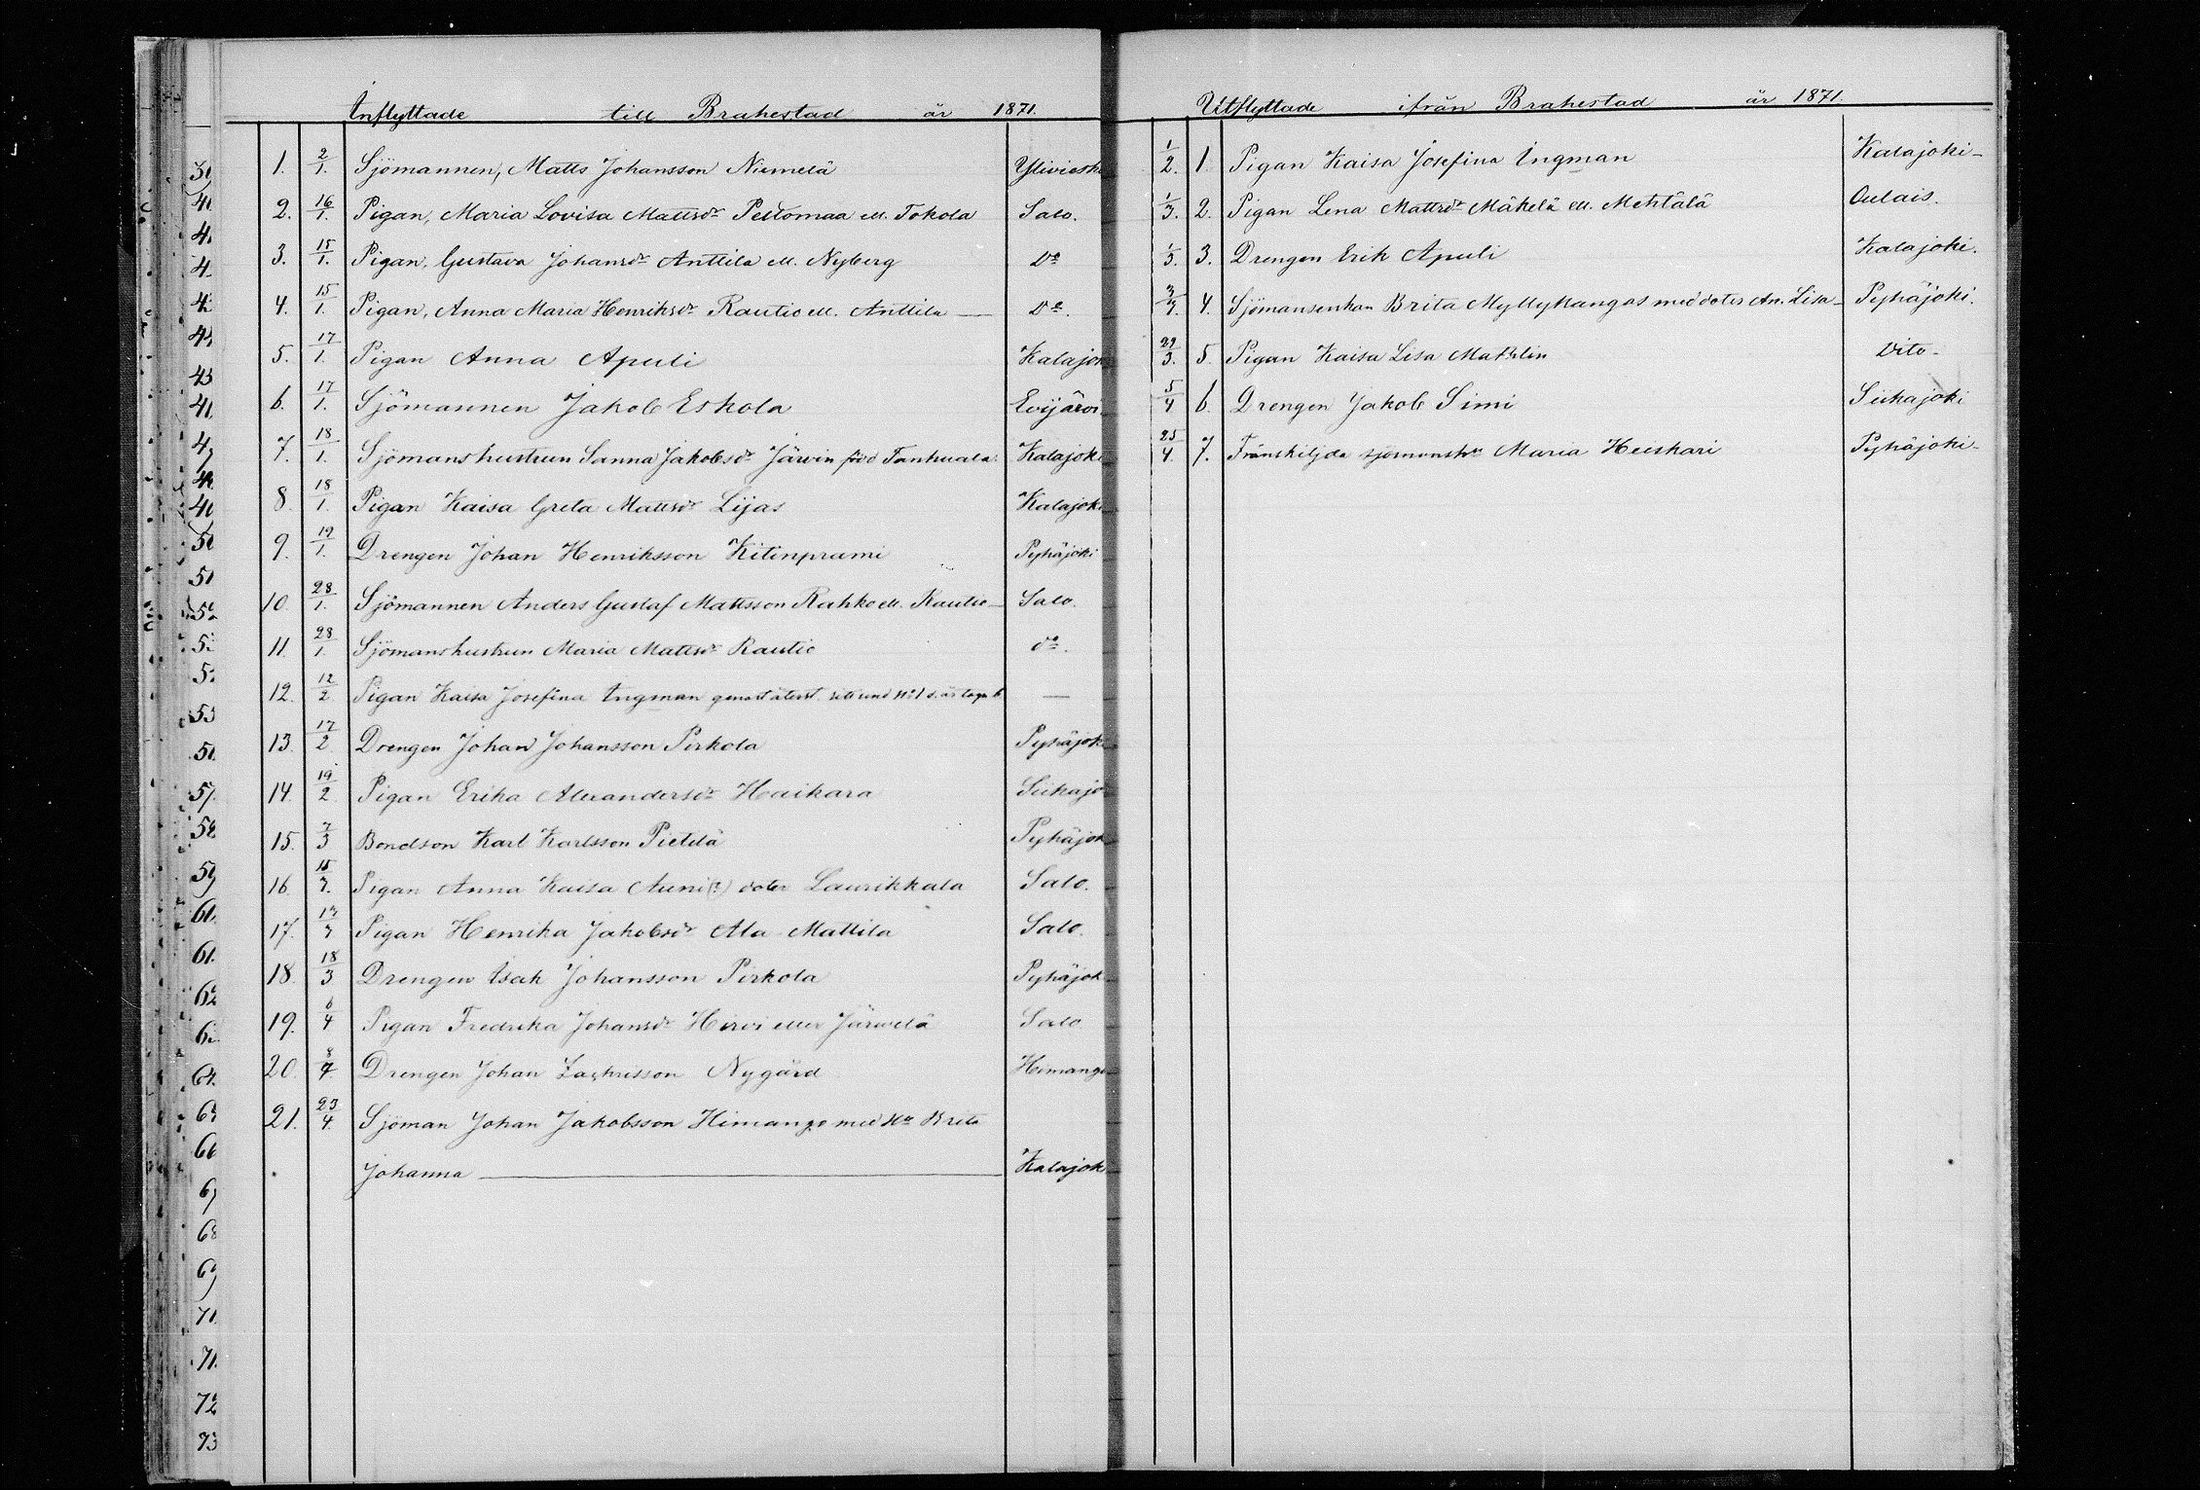 Inflyttade till Brahestad år 1871.
1. 2/1. Sjömannen, Matts Johansson Niemelä Yliviesk
2. 16/1. Pigan, Maria Lovisa Mattsdr Peltomaa ell. Tokola Salo.
3. 15/1. Pigan, Gustava Johansdr Anttila ell. Nyberg Do
4. 15/1. Pigan, Anna Maria Henriksdr Rautio ell. Anttila — Do.
5. 17/1. Pigan Anna Apuli Kalajok
6. 17/1. Sjömannen Jakob Eskola Evijärvi
7. 18/1. Sjömanshustrun Sanna Jakobsdr Järvin född Tanhuala Kalajoki
8. 18/1. Pigan Kaisa Greta Mattsdr Lijas Kalajoki
9. 19/1. Drengen Johan Henriksson Kitinprami Pyhäjoki
10. 28/1. Sjömannen Anders Gustaf Mattsson Rahko ell. Rautio — Salo.
11. 28/1. Sjömanshustrun Maria Mattsdr Rautio do.
12. 12/2 Pigan Kaisa Josefina Ingman —
13. 17/2 Drengen Johan Johansson Pirkola Pyhäjok
14. 19/2 Pigan Erika Alexandersdr Haikara Siikajo
15. 7/3 Bondson Karl Karlsson Pietilä Pyhäjok
16. 15/3. Pigan Anna Kaisa Auni(?) doter Laurikkala Salo.
17. 17/3 Pigan Henrika Jakobsdr Ala Mattila Salo.
18. 18/3 Drengen Isak Johansson Pirkola Pyhäjok
19. 6/4 Pigan Fredrika Johansdr Hirvi eller Järvelä Salo
20. 8/4 Drengen Johan Zachrisson Nygård Himango
21. 23/4. Sjöman Johan Jakobsson Himango med Hu Brita
Johanna — Kalajok
Utflyttade ifrån Brahestad år 1871.
1/2. 1. Pigan Kaisa Josefina Ingman Kalajoki —
1/3. 2. Pigan Lena Mattsdr Mäkelä ell. Mehtälä Oulais.
1/3. 3. Drengen Erik Apuli Kalajoki.
3/3. 4. Sjömansenkan Brita Myllykangas med doter An. Lisa — Pyhäjoki.
29/3. 5. Pigan Kaisa Lisa Mathlin Dito —
5/4 6. Drengen Jakob Simi Siikajoki
25/4. 7. Frånskiljda sjömanshu Maria Heiskari Pyhäjoki —